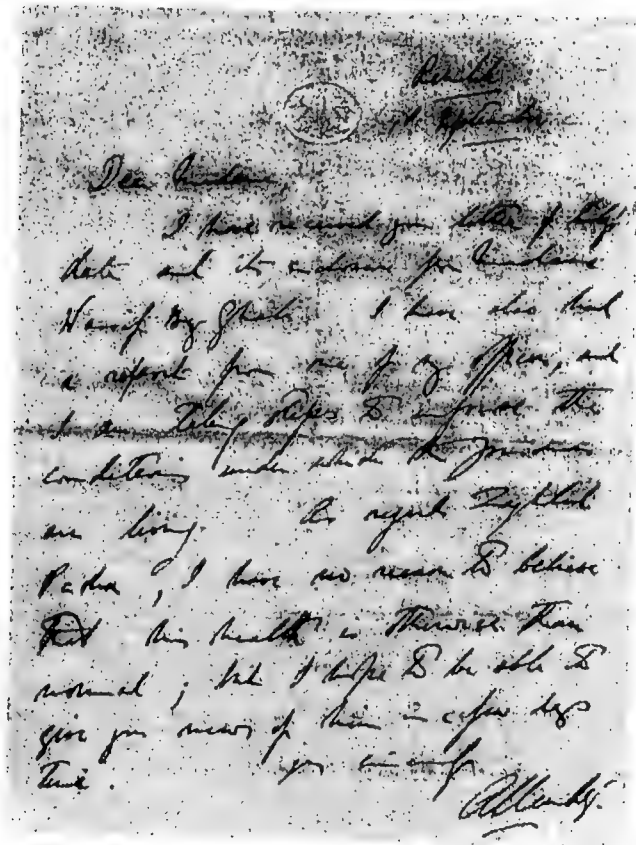 Ramleh
September
Dear Madam,
I have received your letter of
date and its enclosure for Madame
Wassif Bey Ghali. I have also had
a report from one of my officers, and
I am taking steps to improve the
conditions under which the prisoners
are living. As regards Zaghlul
Pasha, I have no reason to believe
that his health is otherwise than
normal; but I hope to be able to
give you news of him in a few days
time. yrs sincerely
Allenby.